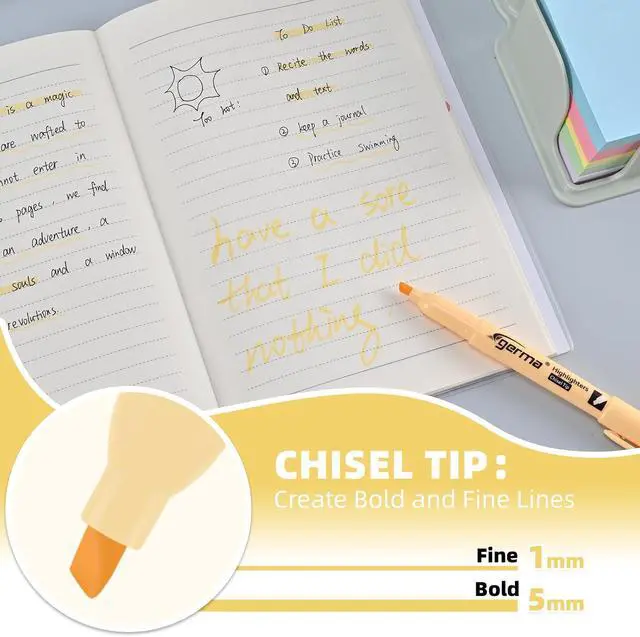 is a magic
are wafted to
not enter in
pages, we find
an adventure, a
souls and a window
revolutions.
Too hot!
To Do List
① Recite the words
and text
② keep a journal
③ Practice swimming
have a sore
that I did
nothing
germa
Highlighters
Chisel Tip
CHISEL TIP:
Create Bold and Fine Lines
Fine 1mm
Bold 5mm